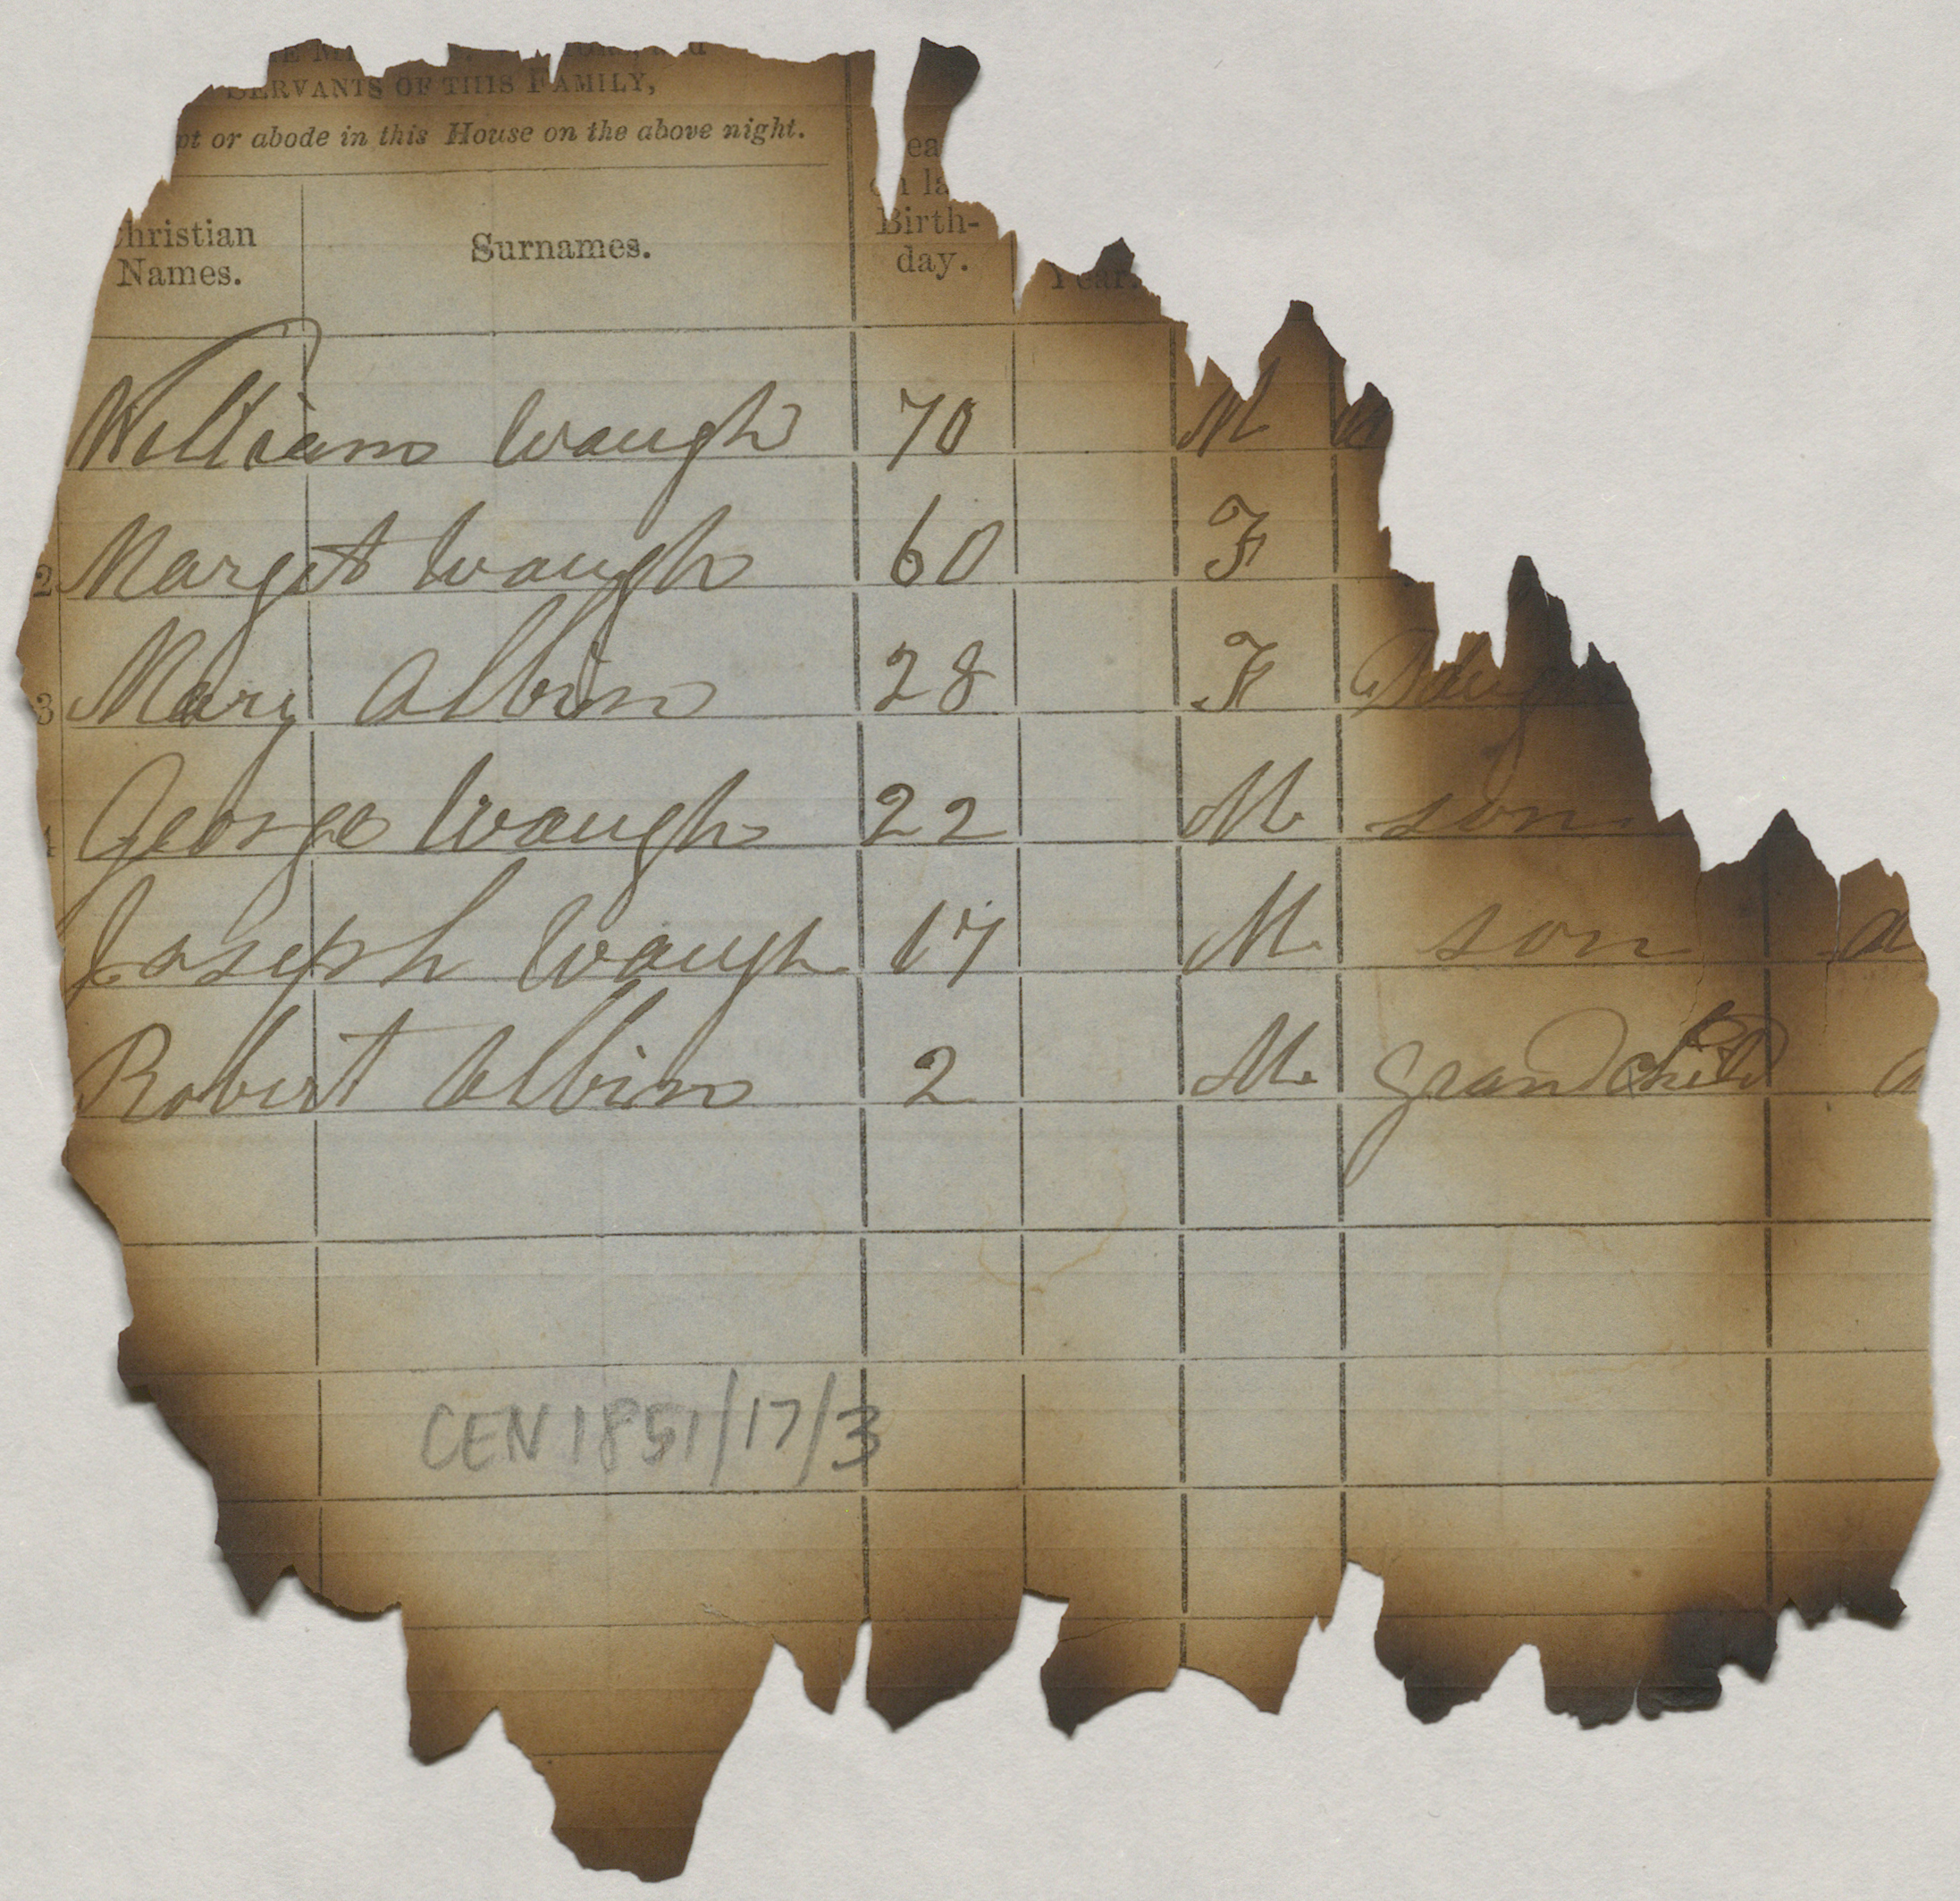 SERVANTS OF THIS FAMILY,
pt or abode in this House on the above night.
hristian Names.
Surnames.
Birth-
day.
Year.
William Waugh 70 M
2 Margit Waugh 60 F
3 Mary Albin 28 F Daugh
4 George Waugh 22 M son
Joseph Waugh 17 M son a
Robert Albin 2 M grand child a
CEN 1851/17/3